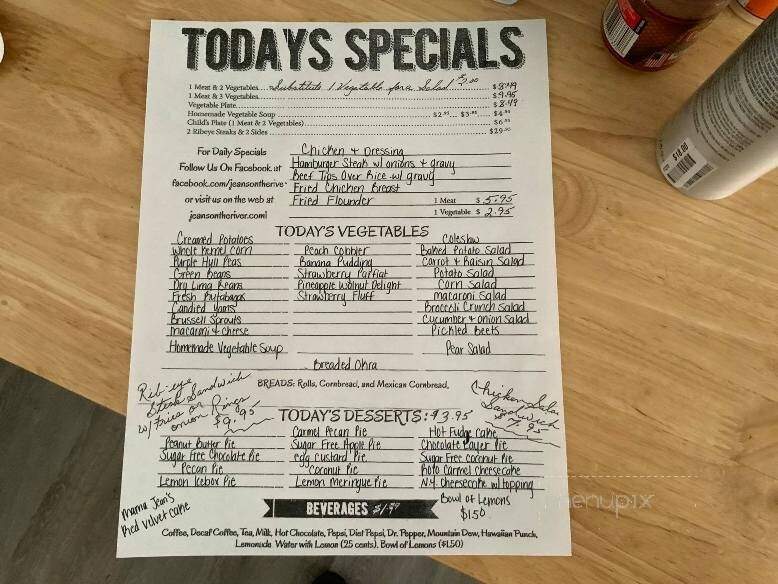 TODAYS SPECIALS
1 Meat & 2 Vegetables... Substitute 1 Vegetable for a Salad $2.00
1 Meat & 3 Vegetables $9.95
Vegetable Plate $8.49
Homemade Vegetable Soup $2.95 $3.95 $4.95
Child's Plate (1 Meat & 2 Vegetables)
2 Ribeye Steaks & 2 Sides
For Daily Specials
Follow Us On Facebook at
facebook.com/jeansontherive
or visit us on the web at
jeansontheriver.com!
Chicken + Dressing
Hamburger Steak w/ onions + gravy
Beef Tips Over Rice w/ gravy
Fried Chicken Breast
Fried Flounder
1 Meat $5.95
1 Vegetable $2.95
TODAY'S VEGETABLES
Creamed Potatoes
Whole Kernel Corn
Purple Hull Peas
Green Beans
Dry Lima Beans
Fresh Rutabagas
Candied Yams
Brussell Sprouts
Macaroni & Cheese
Homemade Vegetable Soup
Peach Cobbler
Banana Pudding
Strawberry Parfiat
Pineapple Walnut Delight
Strawberry Fluff
Coleslaw
Baked Potato Salad
Carrot + Raisin Salad
Potato Salad
Corn Salad
Macaroni Salad
Broccoli Crunch Salad
Cucumber + Onion Salad
Pickled Beets
Pear Salad
Breaded Okra
BREADS: Rolls, Cornbread, and Mexican Cornbread.
Rib-eye
Steak Sandwich
w/ Fries or
onion Rings
$9.95
Chicken Salad
Sandwich
7.95
TODAY'S DESSERTS: $3.95
Peanut Butter Pie
Sugar Free Chocolate Pie
Pecan Pie
Lemon Icebox Pie
Carmel Pecan Pie
Sugar Free Apple Pie
egg custard Pie
Coconut Pie
Lemon Meringue Pie
Hot Fudge Cake
Chocolate Layer Pie
Sugar Free Coconut Pie
Rolo Carmel Cheesecake
N.Y. Cheesecake w/ topping
Mama Jean's
Red velvet cake
BEVERAGES $1.99
Bowl of Lemons
$1.50
Coffee, Decaf Coffee, Tea, Milk, Hot Chocolate, Pepsi, Diet Pepsi, Dr. Pepper, Mountain Dew, Hawaiian Punch,
Lemonade Water with Lemon (25 cents), Bowl of Lemons ($1.50)
$18.00
menupix